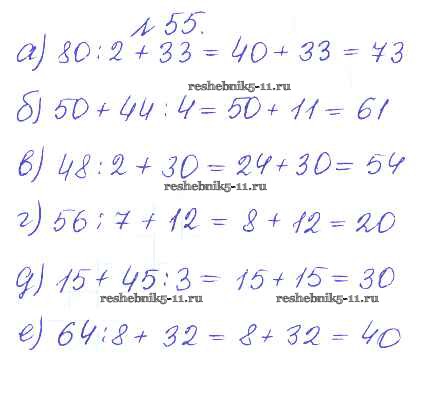 № 55.
а) 80 : 2 + 33 = 40 + 33 = 73
reshebnik5-11.ru
б) 50 + 44 : 4 = 50 + 11 = 61
в) 48 : 2 + 30 = 24 + 30 = 54
reshebnik5-11.ru
г) 56 : 7 + 12 = 8 + 12 = 20
д) 15 + 45 : 3 = 15 + 15 = 30
reshebnik5-11.ru reshebnik5-11.ru
е) 64 : 8 + 32 = 8 + 32 = 40